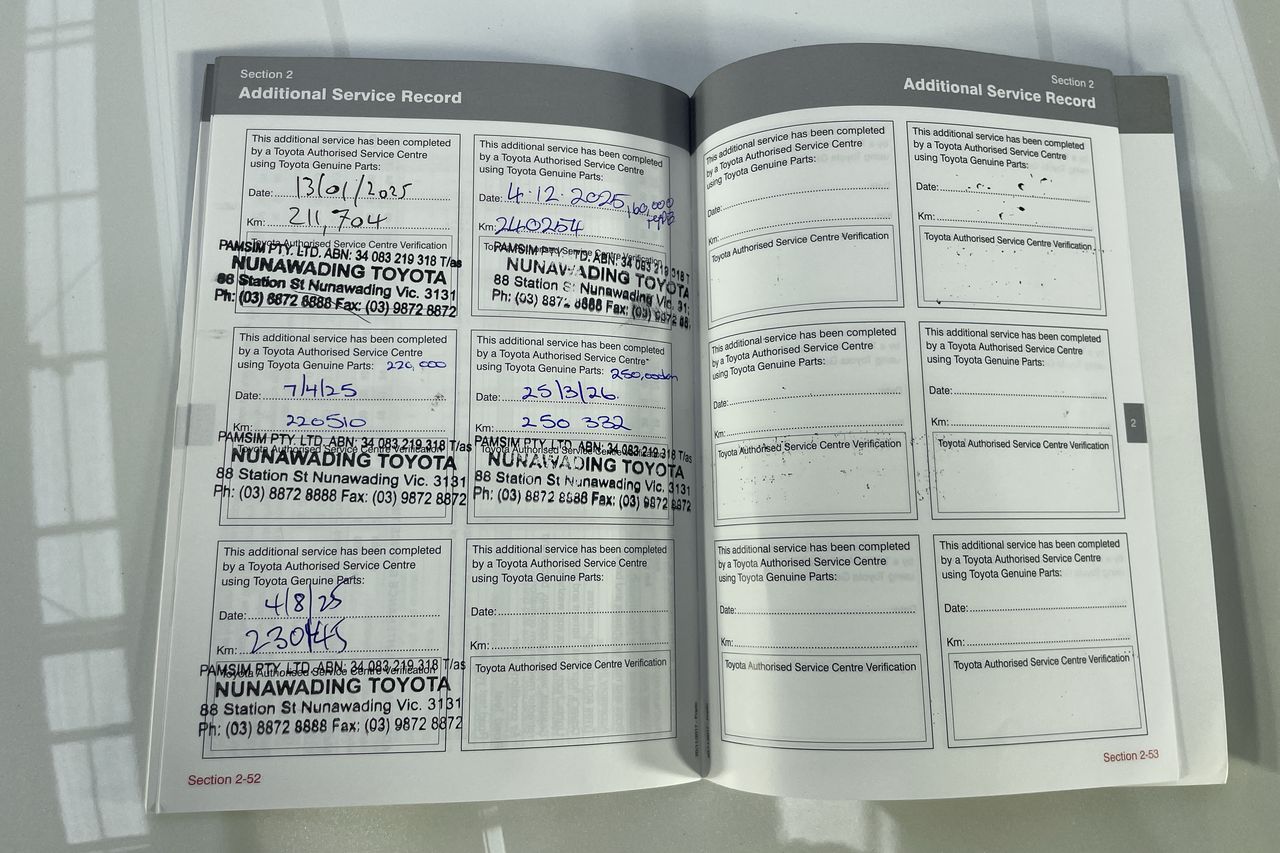 Section 2
Additional Service Record
This additional service has been completed
by a Toyota Authorised Service Centre
using Toyota Genuine Parts:
Date: 13/01/2025
Km: 211,704
Toyota Authorised Service Centre Verification
PAMSIM PTY. LTD. ABN: 34 083 219 318 T/as
NUNAWADING TOYOTA
88 Station St Nunawading Vic. 3131
Ph: (03) 8872 8888 Fax: (03) 9872 8872
This additional service has been completed
by a Toyota Authorised Service Centre
using Toyota Genuine Parts: 220,000
Date: 7/4/25
Km: 220510
Toyota Authorised Service Centre Verification
PAMSIM PTY. LTD. ABN: 34 083 219 318 T/as
NUNAWADING TOYOTA
88 Station St Nunawading Vic. 3131
Ph: (03) 8872 8888 Fax: (03) 9872 8872
This additional service has been completed
by a Toyota Authorised Service Centre
using Toyota Genuine Parts:
Date: 4/8/25
Km: 230145
Toyota Authorised Service Centre Verification
PAMSIM PTY. LTD. ABN: 34 083 219 318 T/as
NUNAWADING TOYOTA
88 Station St Nunawading Vic. 3131
Ph: (03) 8872 8888 Fax: (03) 9872 8872
This additional service has been completed
by a Toyota Authorised Service Centre
using Toyota Genuine Parts:
Date: 4.12.2025
Km: 240254
Toyota Authorised Service Centre Verification
PAMSIM PTY. LTD. ABN: 34 083 219 318 T
NUNAWADING TOYOTA
88 Station St Nunawading Vic. 31
Ph: (03) 8872 8888 Fax: (03) 9872 88
This additional service has been completed
by a Toyota Authorised Service Centre
using Toyota Genuine Parts:
Date: 25/3/26
Km: 250 332
Toyota Authorised Service Centre Verification
PAMSIM PTY. LTD. ABN: 34 083 219 318 T/as
NUNAWADING TOYOTA
88 Station St Nunawading Vic. 3131
Ph: (03) 8872 8888 Fax: (03) 9872 8872
This additional service has been completed
by a Toyota Authorised Service Centre
using Toyota Genuine Parts:
Date:
Km:
Toyota Authorised Service Centre Verification
Section 2-52
Section 2
Additional Service Record
This additional service has been completed
by a Toyota Authorised Service Centre
using Toyota Genuine Parts:
Date:
Km:
Toyota Authorised Service Centre Verification
This additional service has been completed
by a Toyota Authorised Service Centre
using Toyota Genuine Parts:
Date:
Km:
Toyota Authorised Service Centre Verification
This additional service has been completed
by a Toyota Authorised Service Centre
using Toyota Genuine Parts:
Date:
Km:
Toyota Authorised Service Centre Verification
This additional service has been completed
by a Toyota Authorised Service Centre
using Toyota Genuine Parts:
Date:
Km:
Toyota Authorised Service Centre Verification
This additional service has been completed
by a Toyota Authorised Service Centre
using Toyota Genuine Parts:
Date:
Km:
Toyota Authorised Service Centre Verification
This additional service has been completed
by a Toyota Authorised Service Centre
using Toyota Genuine Parts:
Date:
Km:
Toyota Authorised Service Centre Verification
2
Section 2-53